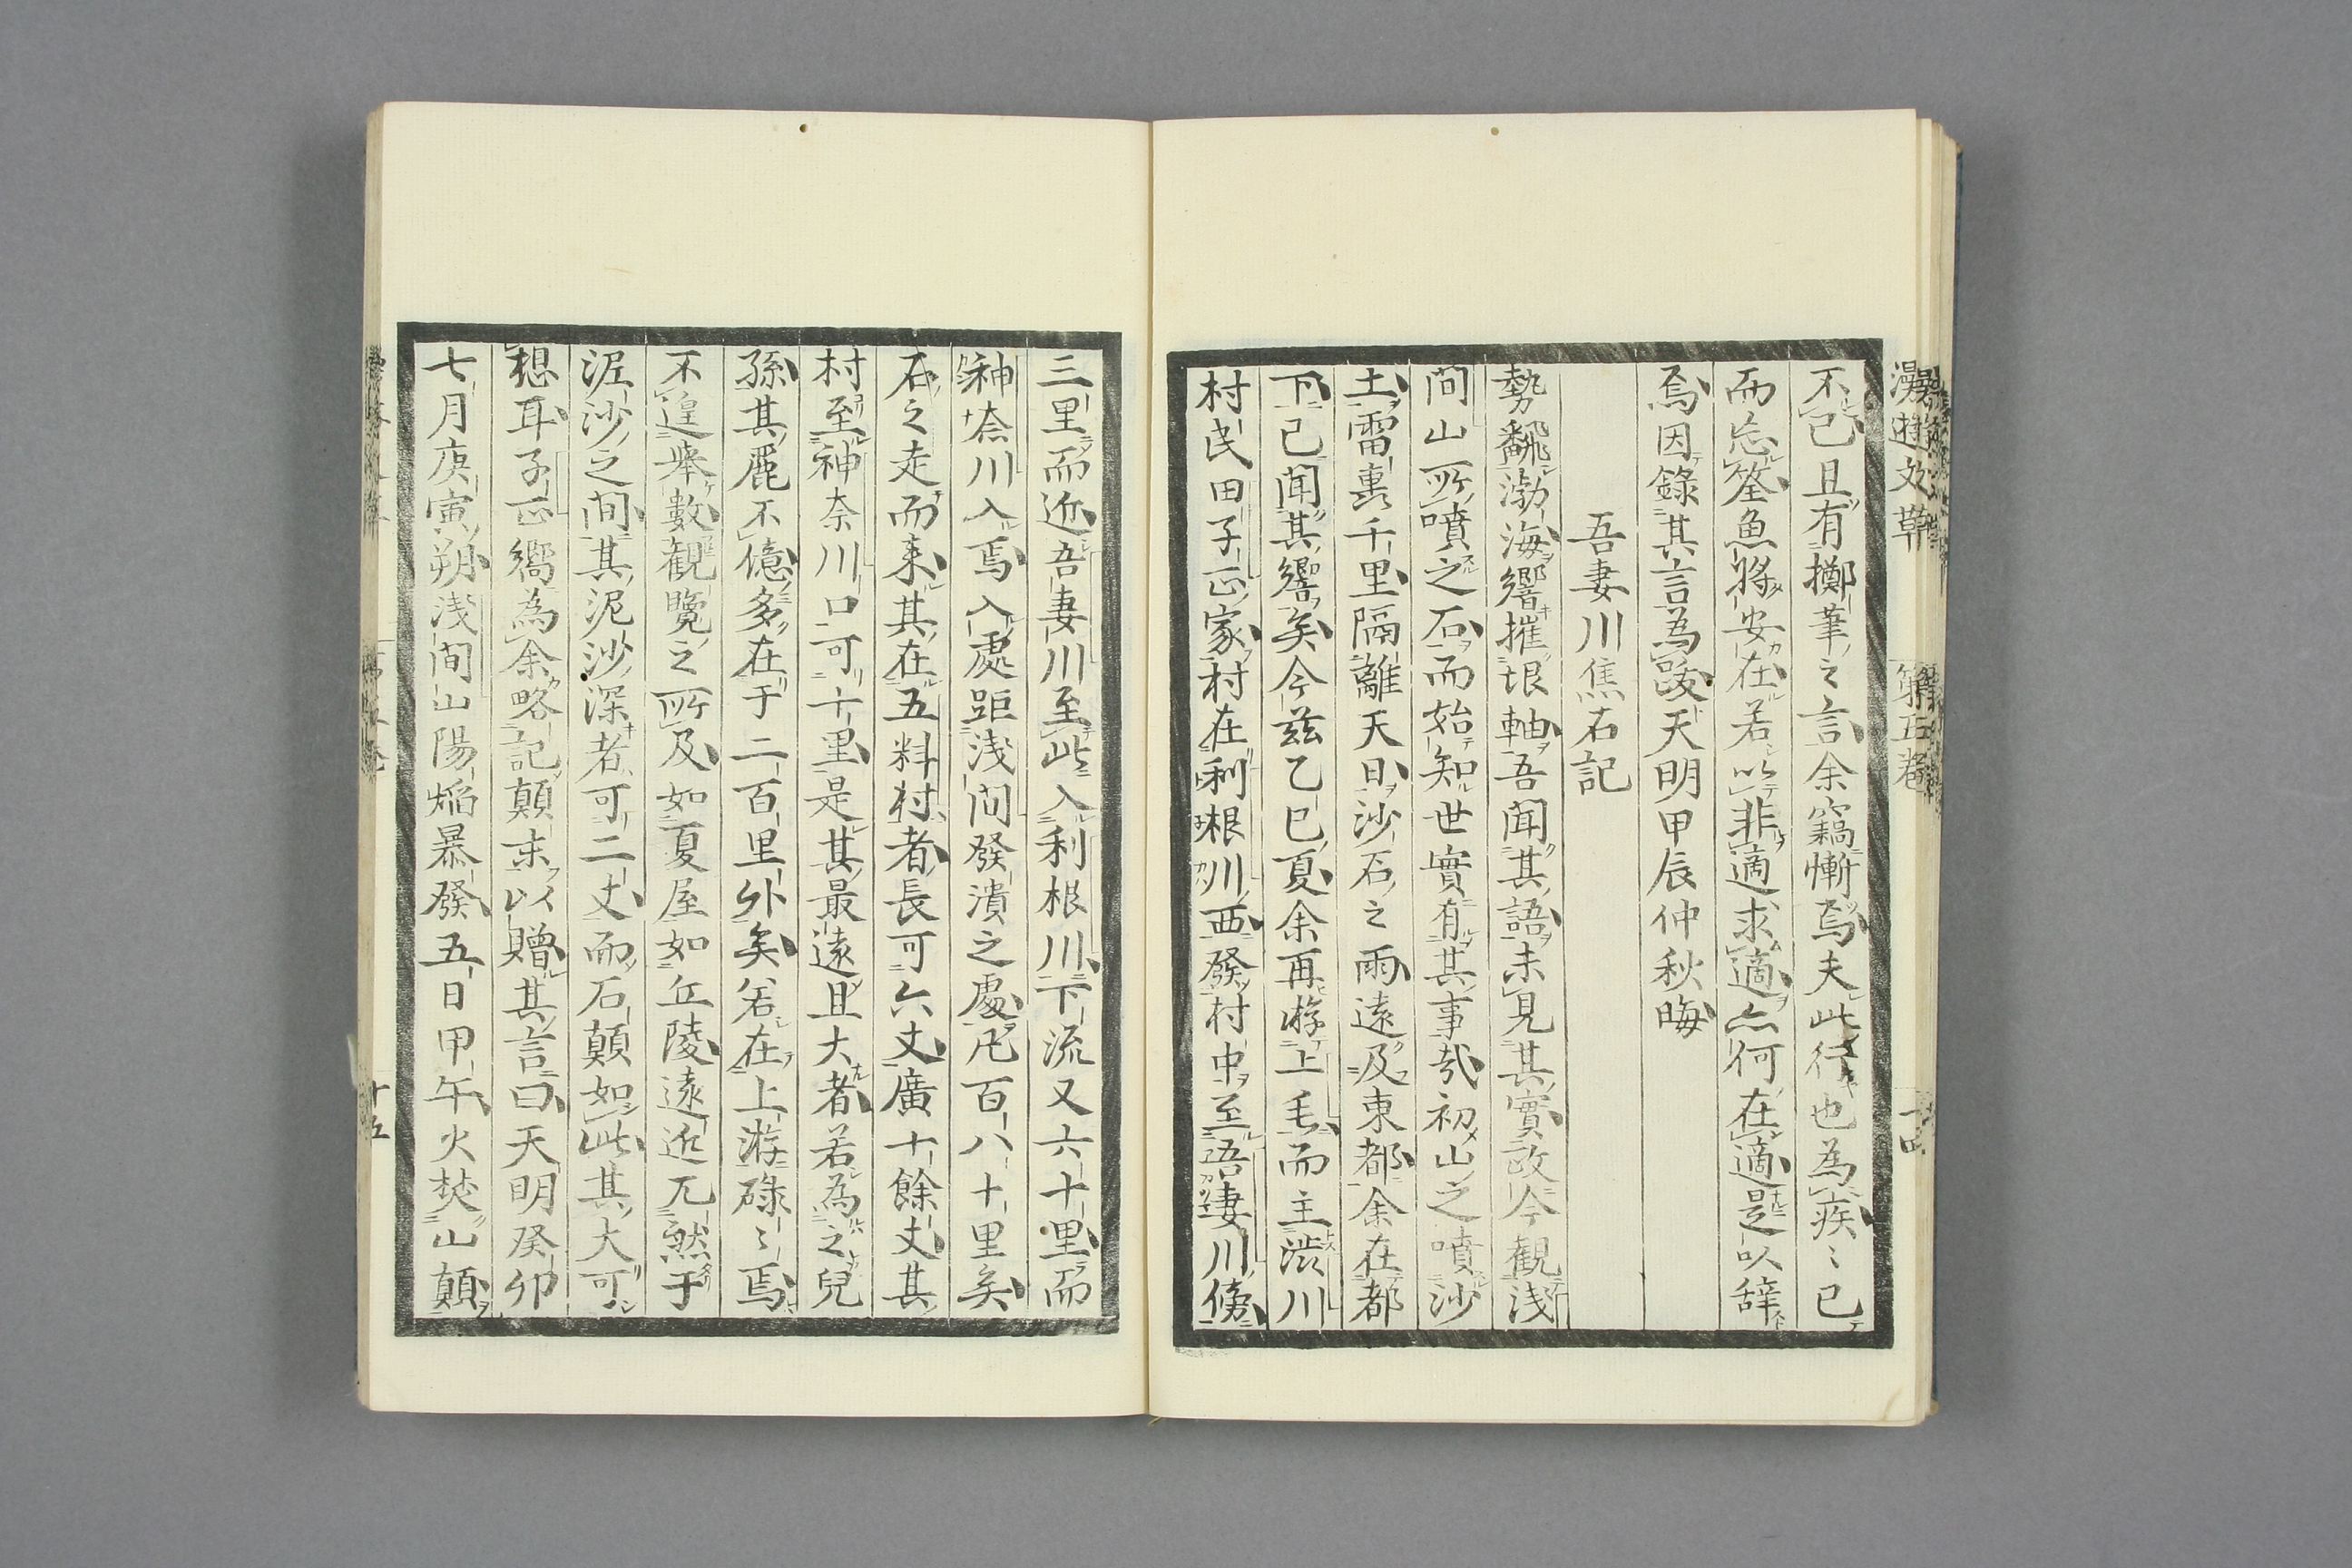 漫遊文草　第五卷　十四
不已且有擲筆之言余竊慚焉夫此行也為疾〻已
而忘筌魚將安在若以非適求適亦何在適是以辞
焉因錄其言為跋天明甲辰仲秋晦
吾妻川焦石記
勢飜渤海響摧垠軸吾聞其語未見其實政今観浅
間山所噴之石而始知世實有其事哉初山之噴沙
土雷轟千里隔離天日沙石之雨遠及東都余在都
下已聞其響矣今茲乙巳夏余再游上毛而主渋川
村民田子正家村在利根川西發村中至吾妻川傍
三里而近吾妻川至此入利根川下流又六十里而
神奈川入焉入處距浅間發潰之處凡百八十里矣
石之走而来其在五料村者長可六丈廣十餘丈其
村至神奈川口可十里是其最遠且大者若為之兒
孫其麗不億多在于二百里外矣若在上游碌〻焉
不遑舉數観覽之所及如夏屋如丘陵遠近兀然于
泥沙之間其泥沙深者可二丈而石顛如此其大可
想耳子正嚮為余略記顛末以贈其言曰天明癸卯
七月庚寅朔浅間山陽焔暴發五日甲午火焚山顛
十五